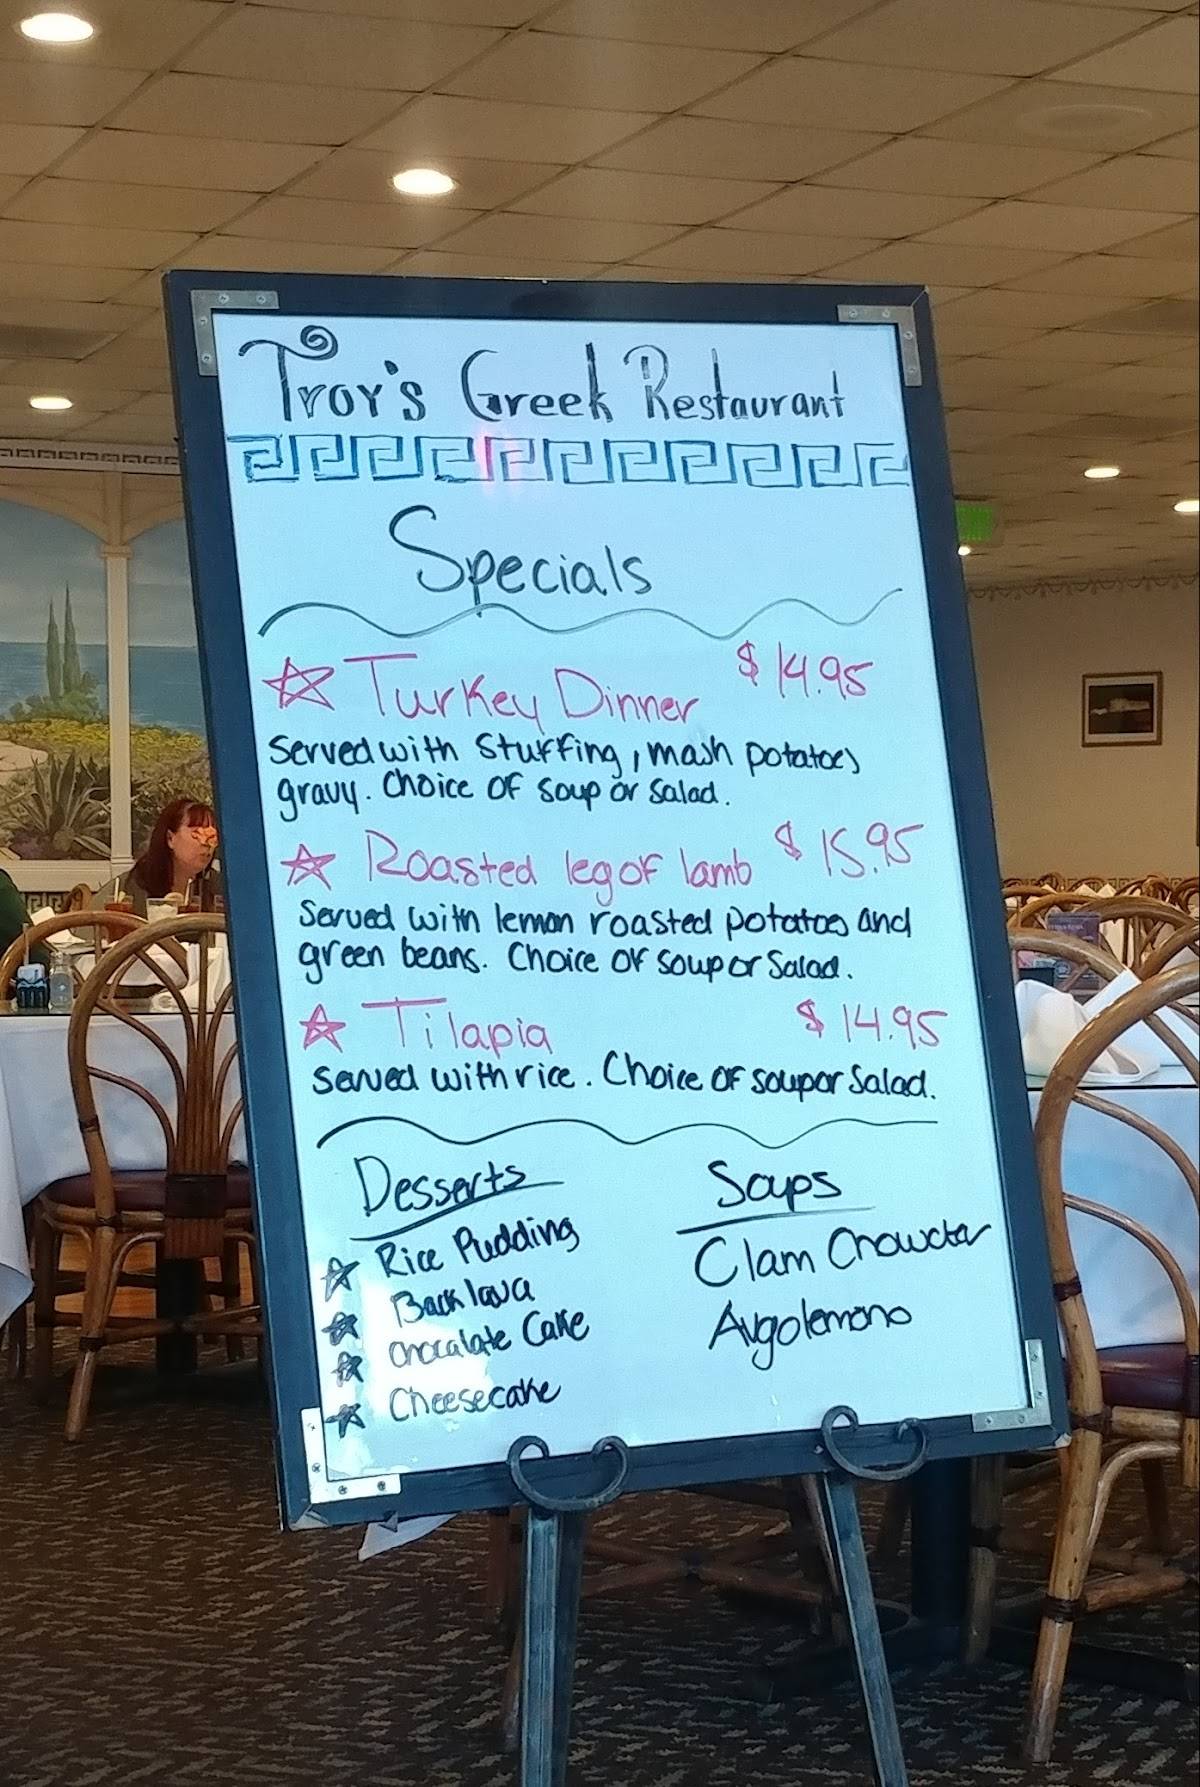 Troy's Greek Restaurant
Specials
Turkey Dinner $14.95
Served with stuffing, mash potatoes
gravy. Choice of soup or salad.
Roasted leg of lamb $15.95
Served with lemon roasted potatoes and
green beans. Choice of soup or salad.
Tilapia $14.95
Served with rice. Choice of soup or salad.
Desserts
Rice Pudding
Backlava
Chocalate Cake
Cheesecake
Soups
Clam Chowder
Avgolemono